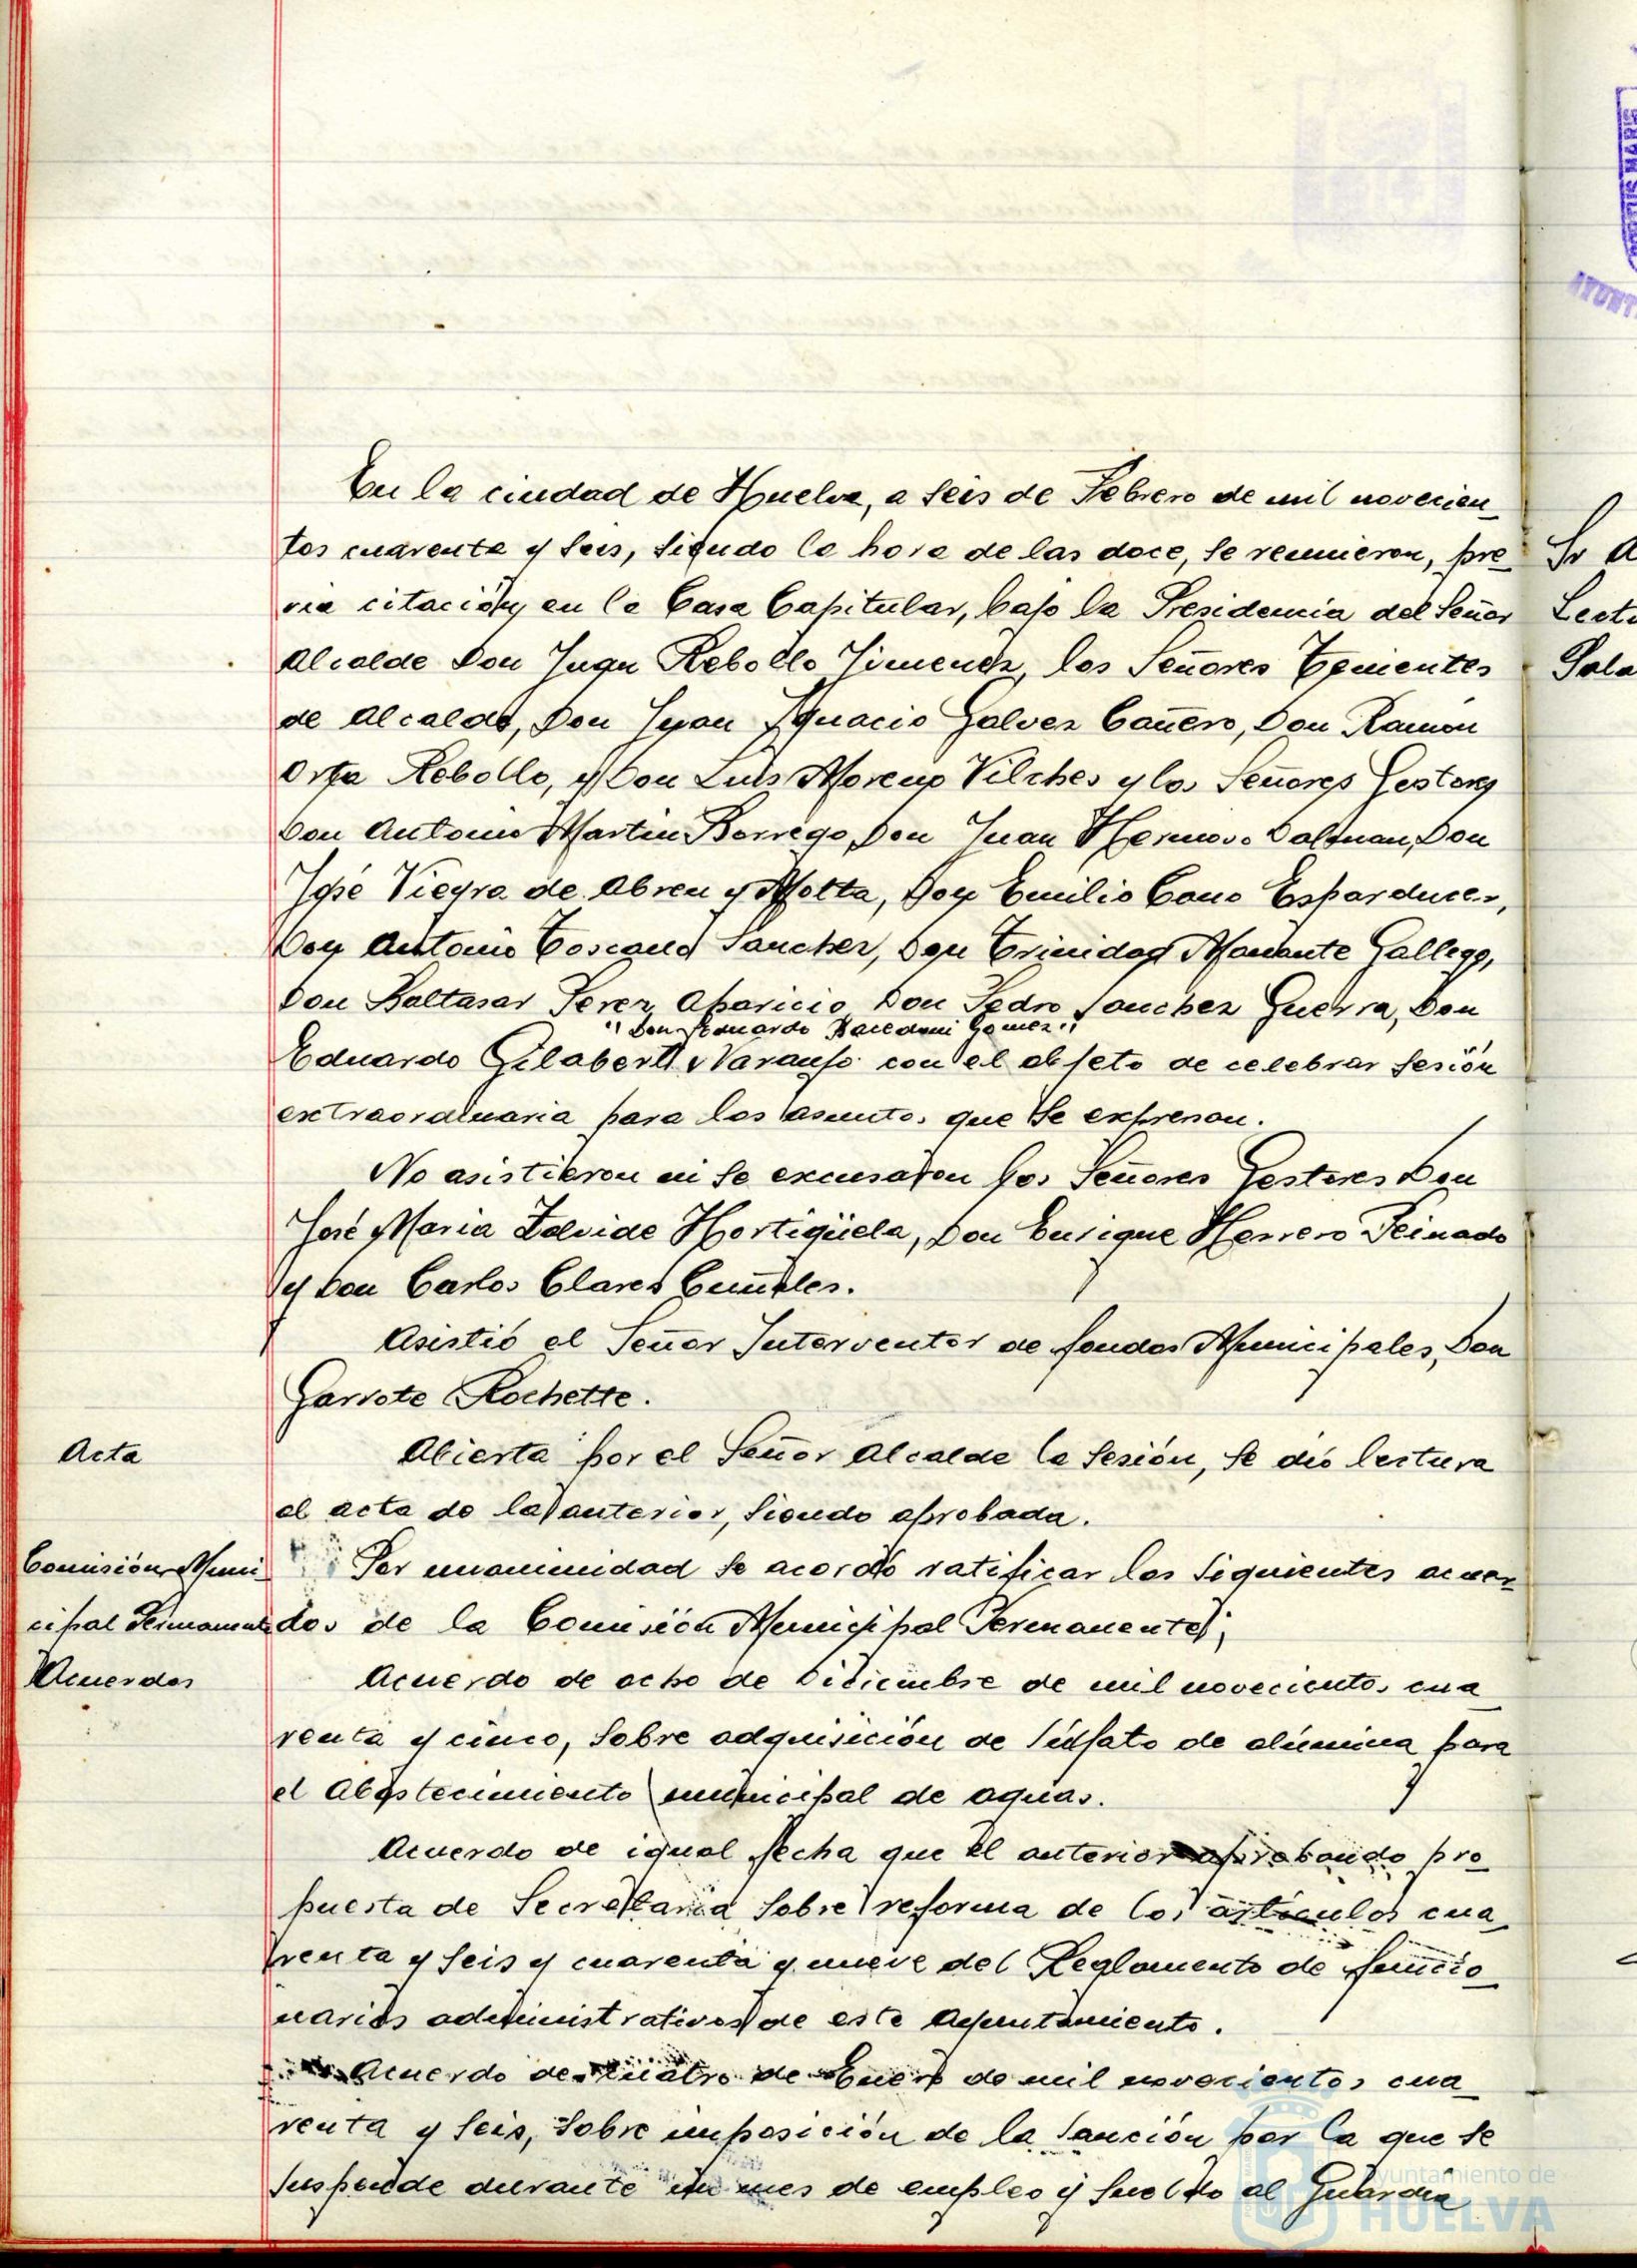 En la ciudad de Huelva, a seis de Febrero de mil novecien_
tos cuarenta y seis, siendo la hora de las doce, se reunieron, pre_
via citación, en la Casa Capitular, bajo la Presidencia del Señor
Alcalde Don Juan Rebollo Jimenez, los Señores Tenientes
de Alcalde, Don Juan Ignacio Galvez Cañero, Don Ramón
Orta Rebollo, y Don Luis Moreno Vilches y los Señores Gestores
Don Antonio Martin Borrego, Don Juan Hermoso Dalman, Don
José Vieyra de Abreu y Motta, Don Emilio Cano Esparducer,
Don Antonio Toscano Sanchez, Don Trinidad Mamante Gallego,
Don Baltasar Perez Aparicio, Don Pedro Sanchez Guerra, Don
"Don Eduardo Gomez"
Eduardo Gilabert Naranjo con el objeto de celebrar sesión
extraordinaria para los asuntos que se expresan.
No asistieron ni se excusaron los Señores Gestores Don
José Maria Zalvide Hortigüela, Don Enrique Herrero Peinado
y Don Carlos Clares
Asistió el Señor Interventor de fondos Municipales, Don
Garrote Rochette.
Acta
Abierta por el Señor Alcalde la sesión, se dió lectura
al acta de la anterior, siendo aprobada.
Comisión Muni_
cipal Permanente
Acuerdos
Por unanimidad se acordó ratificar los siguientes acuer_
dos de la Comisión Municipal Permanente;
Acuerdo de ocho de Diciembre de mil novecientos cua_
renta y cinco, sobre adquisición de súlfato de alúmina para
el Abastecimiento municipal de aguas.
Acuerdo de igual fecha que el anterior aprobando pro_
puesta de Secretaria sobre reforma de los artículos cua_
renta y seis y cuarenta y nueve del Reglamento de funcio_
narios administrativos de este Ayuntamiento.
Acuerdo de cuatro de Enero de mil novecientos cua_
renta y seis, sobre imposición de la sanción por la que se
suspende durante un mes de empleo y sueldo al Guardia
Sr A
Lectu
Pala
PORTUS MARIS
AYUNT
Ayuntamiento de
HUELVA